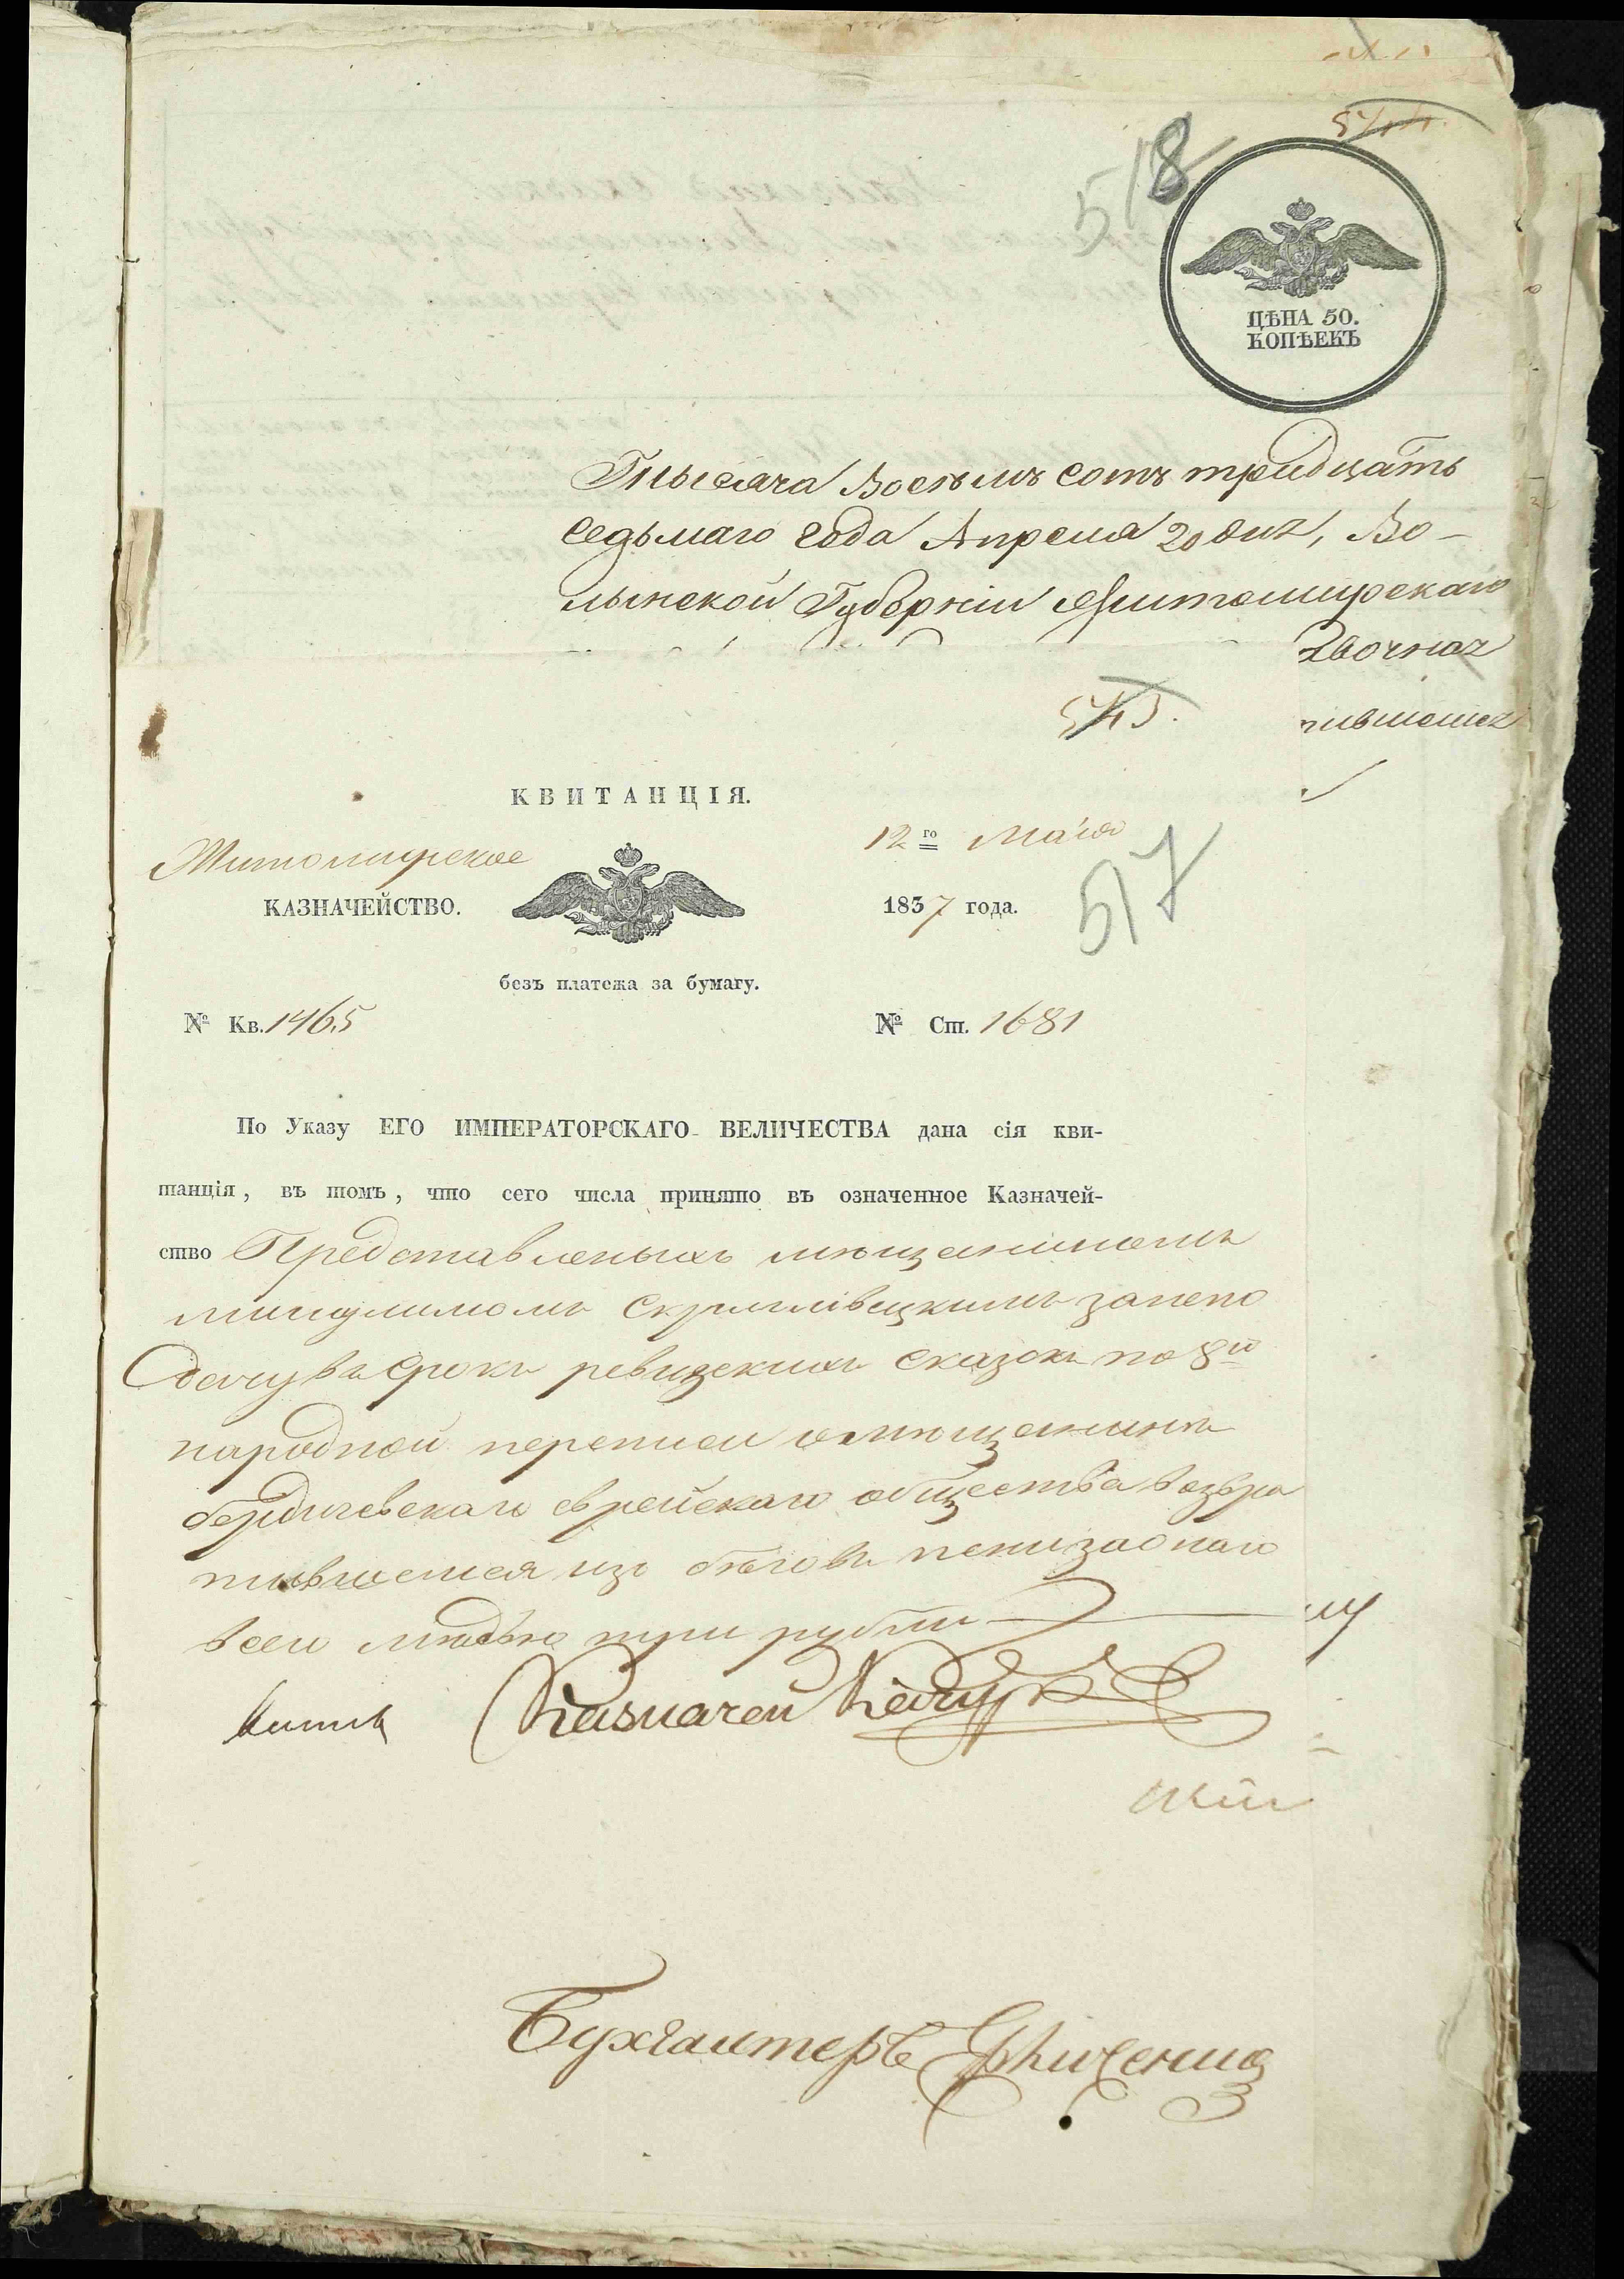 518
ЦѢНА 50.
КОПѢЕКЪ
Тысяча Восемъ сотъ тридцать
седьмаго года Апреля 20 дня, Во-
лынской Губерніи Житомирскаго
517
КВИТАНЦІЯ.
Житомирское
КАЗНАЧЕЙСТВО.
12го Маія
1837 года.
безъ платежа за бумагу.
№ Кв. 1465
№ Ст. 1681
По Указу ЕГО ИМПЕРАТОРСКАГО ВЕЛИЧЕСТВА дана сія кви-
танція, въ томъ, что сего числа принято въ означенное Казначей-
ство Представленыхъ мещаниномъ
занепо
дачу въ срокъ ревизскихъ сказокъ по 8й
народной переписи о мещанинѣ
бердичевскаго еврейскаго общества возвра
тившемся изъ бѣговъ
всего медью три рубли
Казначей
Бухгалтеръ